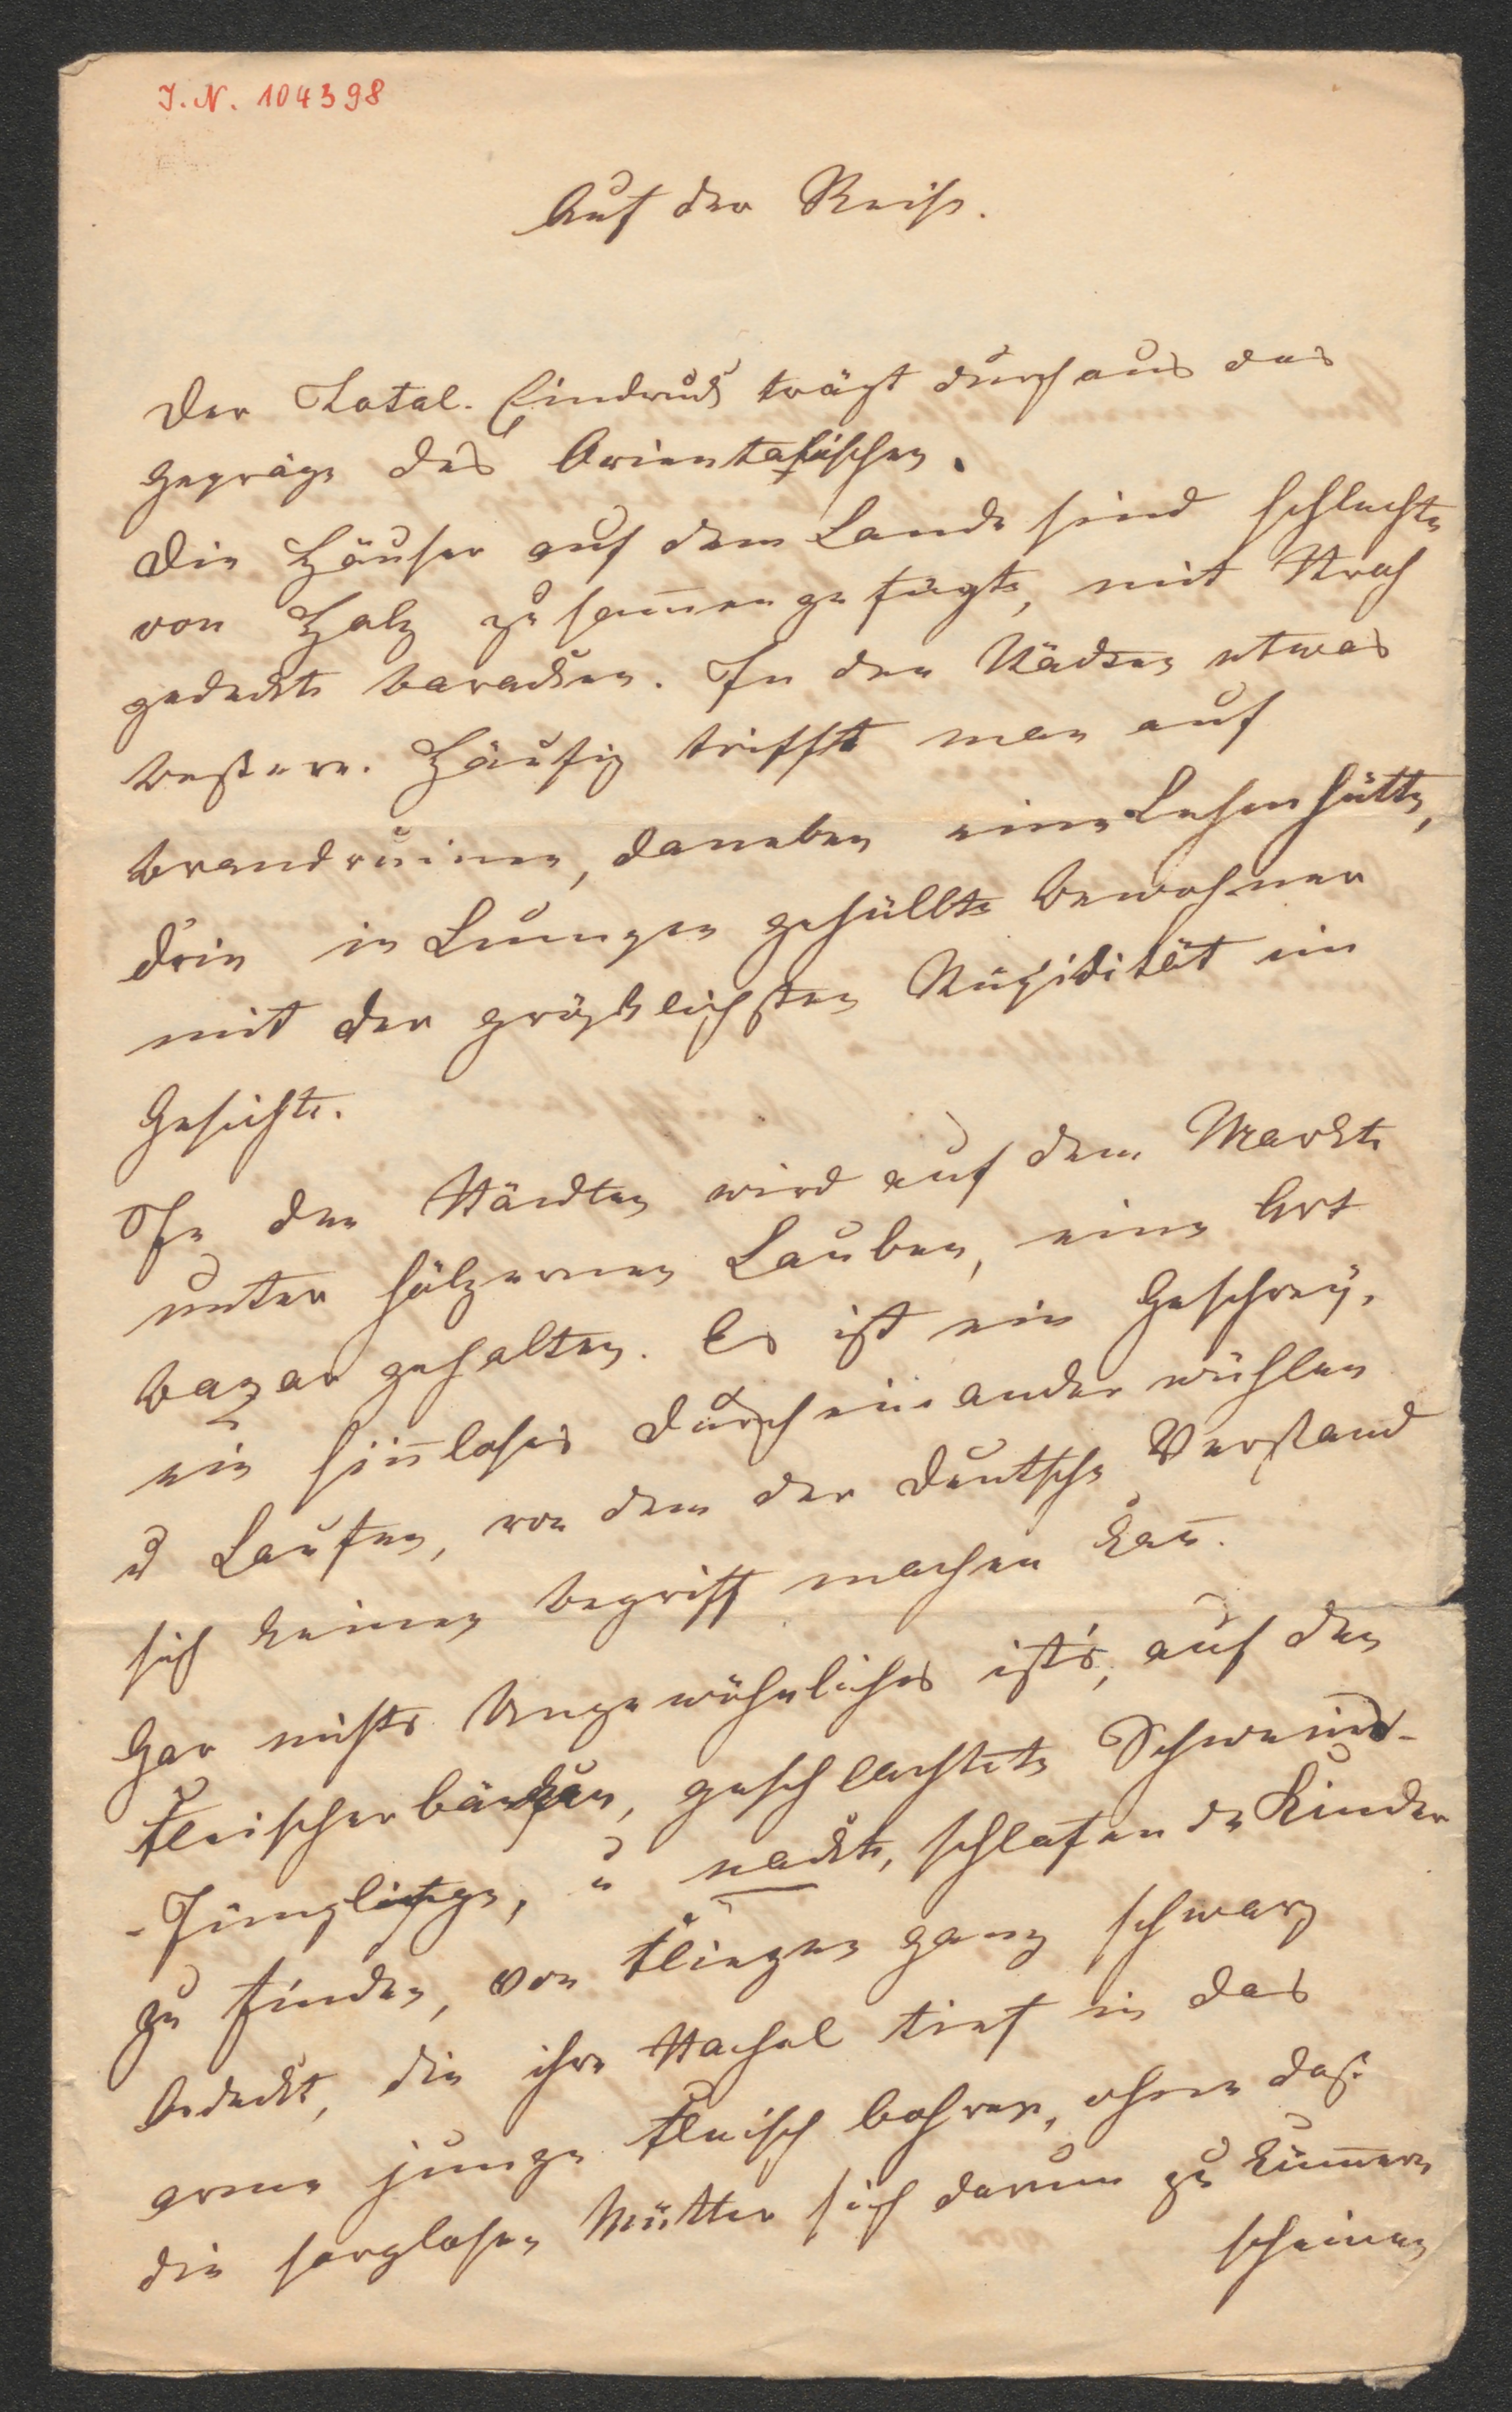 J. N. 104398
Auf der Reise.
Der Total-Eindruck trägt durchaus das
Gepräge des Orientalischen.
Die Häuser auf dem Lande sind schlechte
von Holz zusam̄engefügte, mit Stroh
gedeckte Baracken. In den Städten etwas
bessere. Häufig trifft man auf
Brandruinen, daneben eine Lehmhütte,
drin in Lumpen gehüllte Bewohner
mit der gräßlichsten Stupidität im
Gesichte.
In den Städten wird auf dem Markte
unter hölzernen Lauben, eine Art
Bazar gehalten. Es ist ein Geschrey,
ein sin̄loses durcheinander wühlen
u Laufen, von dem der deutsche Verstand
sich keinen Begriff machen kan̄.
Gar nichts Ungewöhnliches ist's, auf den
Fleischerbänken, geschlachtete Schweins-
-Jünglinge, u nackte, schlafende Kinder
zu finden, von Fliegen ganz schwarz
bedeckt, die ihre Stachel tief in das
arme junge Fleisch bohren, ohne daß
die sorglosen Mütter sich darum zu küm̄ern
scheinen